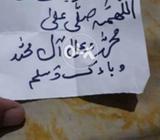 اللهمه صلي على
محمد وعلى آل محمد
وبارك وسلم